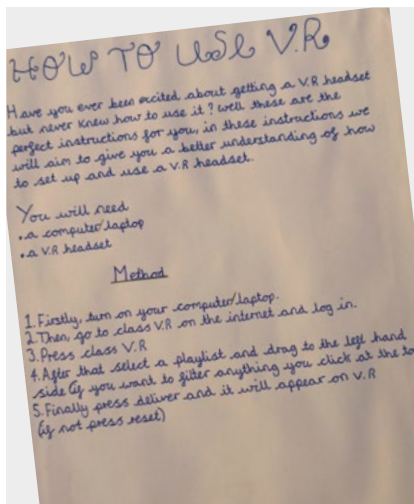 HOW TO USE V.R
Have you ever been excited about getting a V.R headset
but never knew how to use it? well these are the
perfect instructions for you, in these instructions we
will aim to give you a better understanding of how
to set up and use a V.R headset.
You will need
•a computer/laptop
•a V.R headset
Method
1. Firstly, turn on your computer/laptop.
2. Then, go to class V.R on the internet and log in.
3. Press class V.R
4. After that select a playlist and drag to the left hand
side (if you want to filter anything you click at the
5. Finally press deliver and it will appear on V.R
(if not press reset)